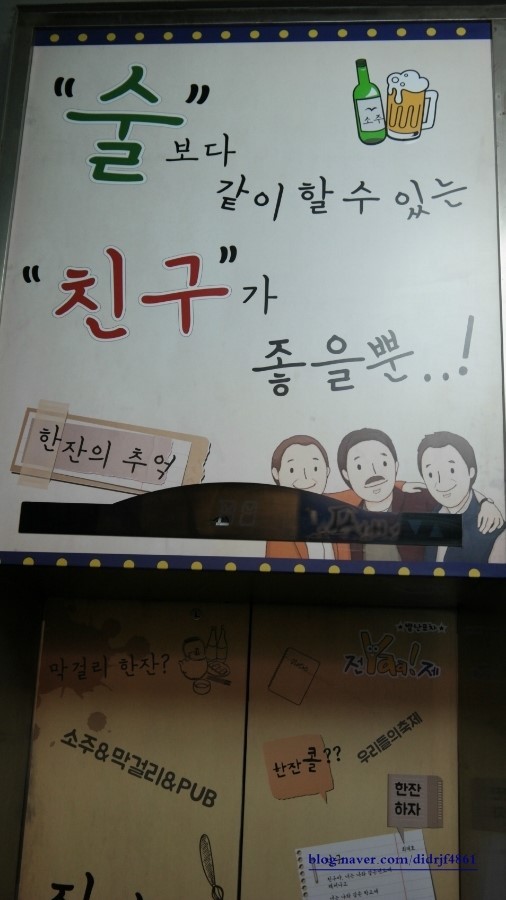 "술"보다
소주
같이 할 수 있는
"친구"가
좋을뿐..!
한잔의 추억
막걸리 한잔?
전Ya제
소주&막걸리&PUB
한잔콜??
우리들의축제
한잔
하자
blog.naver.com/didrjf4861